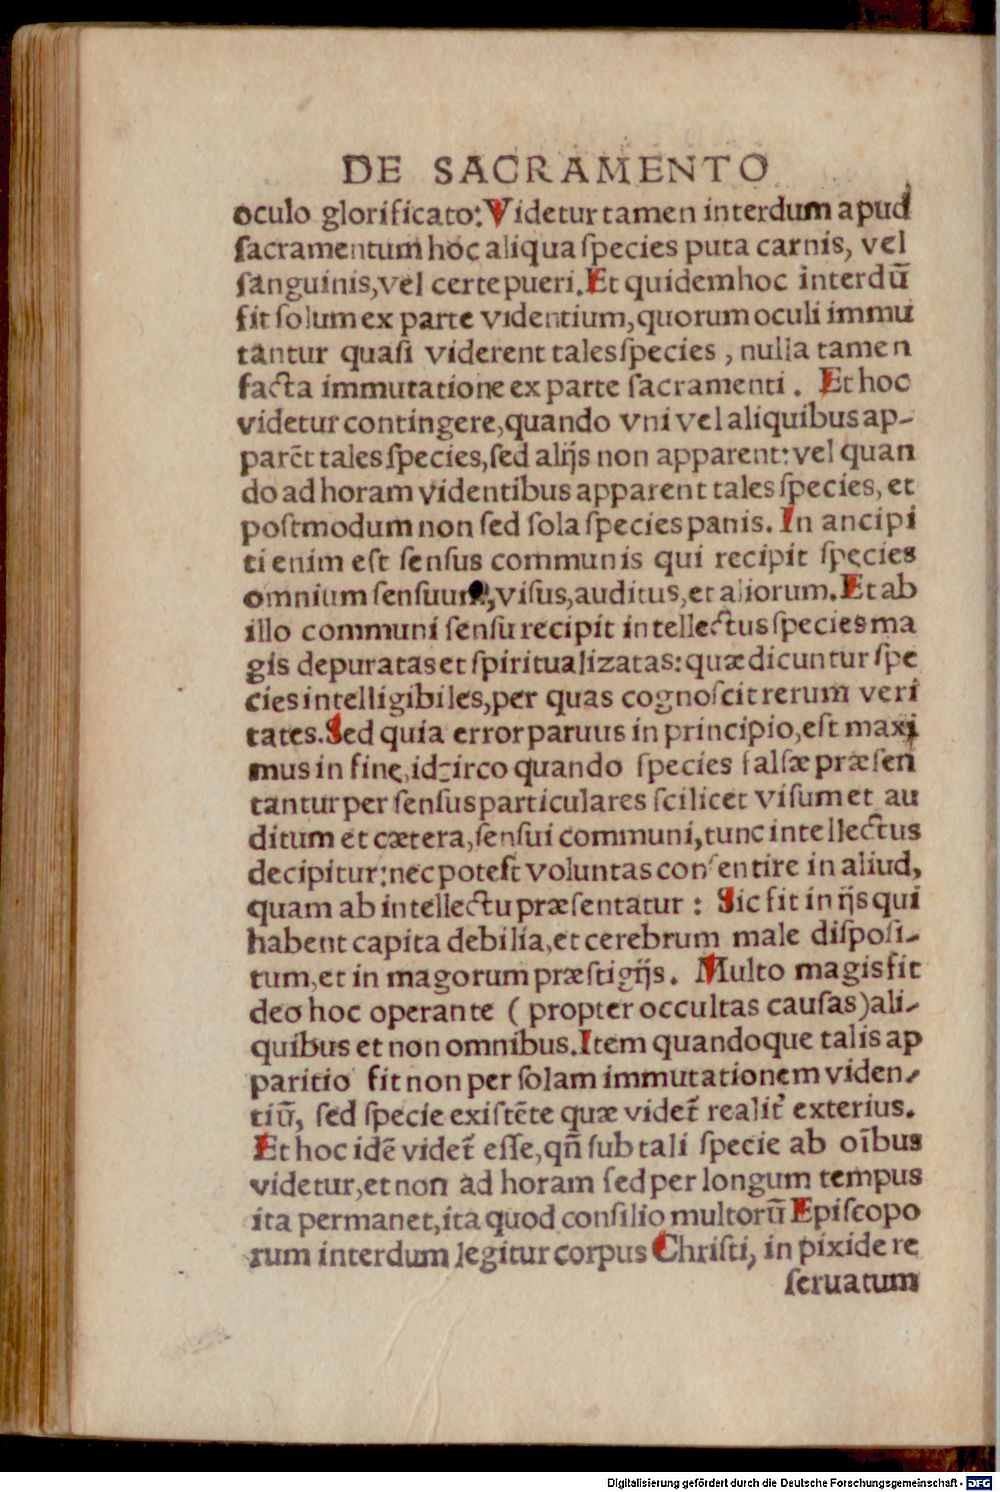 DE SACRAMENTO
oculo glorificato: Videtur tamen interdum apud
ſacramentum hoc aliqua ſpecies puta carnis, vel
ſanguinis, vel certe pueri. Et quidem hoc interdū
fit ſolum ex parte videntium, quorum oculi immu
tantur quaſi viderent tales ſpecies, nulla tamen
facta immutatione ex parte ſacramenti. Et hoc
videtur contingere, quando vni vel aliquibus ap-
parēt tales ſpecies, ſed alijs non apparent: vel quan
do ad horam videntibus apparent tales ſpecies, et
poſtmodum non ſed ſola ſpecies panis. In ancipi
ti enim eſt ſenſus communis qui recipit ſpecies
omnium ſenſuum, viſus, auditus, et aliorum. Et ab
illo communi ſenſu recipit intellectus ſpecies ma
gis depuratas et ſpiritualizatas: quæ dicuntur ſpe
cies intelligibiles, per quas cognoſcit rerum veri
tates. Sed quia error paruus in principio, eſt maxi
mus in fine, idcirco quando ſpecies falſæ præſen
tantur per ſenſus particulares ſcilicet viſum et au
ditum et cætera, ſenſui communi, tunc intellectus
decipitur: nec poteſt voluntas conſentire in aliud,
quam ab intellectu præſentatur : Sic fit in ijs qui
habent capita debilia, et cerebrum male diſpoſi-
tum, et in magorum præſtigijs. Multo magis fit
deo hoc operante ( propter occultas cauſas) ali-
quibus et non omnibus. Item quandoque talis ap
paritio fit non per ſolam immutationem viden-
tiū, ſed ſpecie exiſtēte quæ videt̄ realit̉ exterius.
Et hoc idē videt̄ eſſe, qn̄ ſub tali ſpecie ab oībus
videtur, et non ad horam ſed per longum tempus
ita permanet, ita quod conſilio multorū Epiſcopo
rum interdum legitur corpus Chriſti, in pixide re
ſeruatum
Digitalisierung gefördert durch die Deutsche Forschungsgemeinschaft - DFG